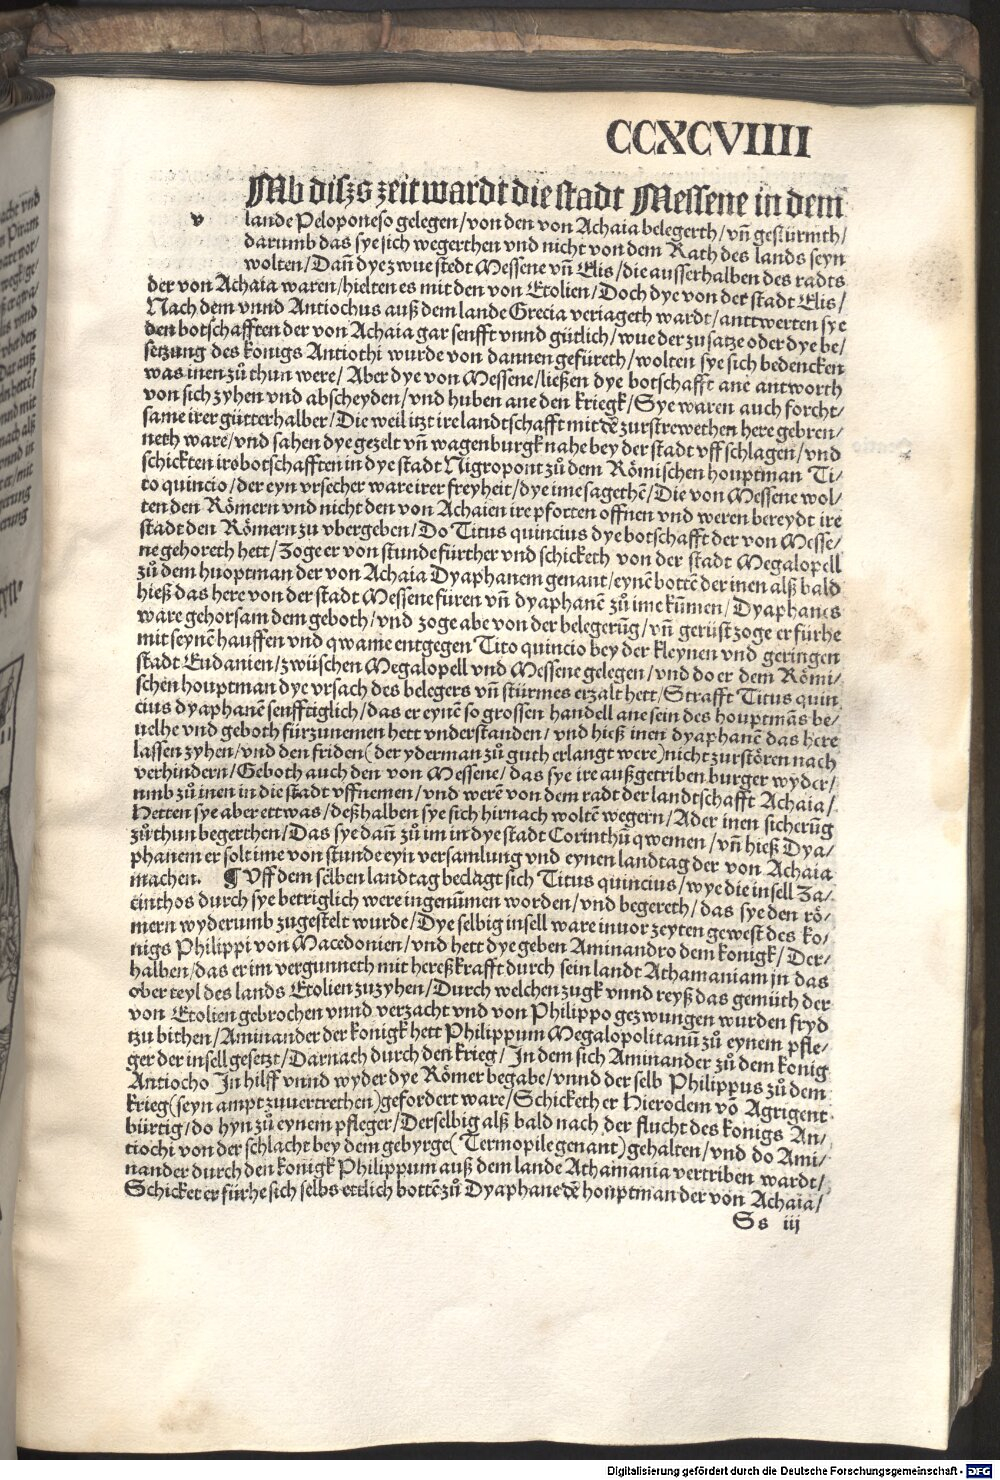 CCXCVIIII
Mb diszs zeit wardt die stadt Messene in dem
v
lande Peloponeso gelegen/von den von Achaia belegerth/vn̄ gestürmth/
darumb das sye sich wegerthen vnd nicht von dem Rath des lands seyn
wolten/Dan̄ dye zwue stedt Messene vn̄ Elis/die ausserhalben des radts
der von Achaia waren/hielten es mit den von Etolien/Doch dye von der stadt Elis/
Nach dem vnnd Antiochus auß dem lande Grecia veriageth wardt/anttwerten sye
den botschafften der von Achaia gar senfft vnnd gütlich/wue der zusatze oder dye be/
setzung des königs Antiochi wurde von dannen gefüreth/wolten sye sich bedencken
was inen zů thun were/Aber dye von Messene/ließen dye botschafft ane antworth
von sich zyhen vnd abscheyden/vnd huben ane den kriegk/Sye waren auch forcht/
same irer gütterhalber/Die weil itzt ire landtschafft mit dē zurstrewethen here gebren/
neth ware/vnd sahen dye gezelt vn̄ wagenburgk nahe bey der stadt vffschlagen/vnd
schickten ire botschafften in dye stadt Nigropont zů dem Römischen houptman Ti/
to quincio/der eyn vrsecher ware irer freyheit/dye ime sagethē/Die von Messene wol/
ten den Römern vnd nicht den von Achaien ire pforten offnen vnd weren bereydt ire
stadt den Römern zu vbergeben/Do Titus quincius dye botschafft der von Messe/
ne gehoreth hett/Zoge er von stunde fürther vnd schicketh von der stadt Megalopell
zů dem huoptman der von Achaia Dyaphanem genant/eynē bottē der inen alß bald
hieß das here von der stadt Messene füren vn̄ dyaphanē zů ime kūmen/Dyaphanes
ware gehorsam dem geboth/vnd zoge abe von der belegerūg/vn̄ gerüst zoge er fürhe
mit seynē hauffen vnd qwame entgegen Tito quincio bey der kleynen vnd geringen
stadt Eudanien/zwüschen Megalopell vnd Messene gelegen/vnd do er dem Römi/
schen houptman dye vrsach des belegers vn̄ stürmes erzalt hett/Strafft Titus quin
cius dyaphanē senfftiglich/das er eynē so grossen handell ane sein des houptmās be/
uelhe vnd geboth fürzunemen hett vnderstanden/vnd hieß inen dyaphanē das here
lassen zyhen/vnd den friden(der yderman zů guth erlangt were)nicht zurstören nach
verhindern/Geboth auch den von Messene/das sye ire außgetriben burger wyder/
umb zů inen in die stadt vffnemen/vnd werē von dem radt der landtschafft Achaia/
Hetten sye aber ettwas/deßhalben sye sich hirnach woltē wegern/Ader inen sicherūg
zů thun begerthen/Das sye dan̄ zů im in dye stadt Corinthū qwemen/vn̄ hieß Dya/
phanem er solt ime von stunde eyn versamlung vnd eynen landtag der von Achaia
machen. ¶ Vff dem selben landtag beclagt sich Titus quincius/wye die insell Za/
cinthos durch sye betriglich were ingenūmen worden/vnd begereth/das sye den rö/
mern wyderumb zugestelt wurde/Dye selbig insell ware inuorzeyten gewest des ko/
nigs Philippi von Macedonien/vnd hett dye geben Aminandro dem konigk/Der/
halben/das er im vergunneth mit hereßkrafft durch sein landt Athamaniam in das
ober teyl des lands Etolien zu zyhen/Durch welchen zugk vnnd reyß das gemüth der
von Etolien gebrochen vnnd verzacht vnd von Philippo gezwungen wurden fryd
tzu bithen/Aminander der konigk hett Philippum Megalopolitanū zů eynem pfle/
ger der insell gesetzt/Darnach durch den krieg/In dem sich Aminander zů dem konig
Antiocho In hilff vnnd wyder dye Römer begabe/vnnd der selb Philippus zů dem
krieg(seyn ampt zuuertrethen)gefordert ware/Schicketh er Hieroclem vō Agrigent
bürtig/do hyn zů eynem pfleger/Derselbig alß bald nach der flucht des konigs An/
tiochi von der schlacht bey dem gebyrge(Termopile genant)gehalten/vnd do Ami/
nander durch den konigk Philippum auß dem lande Athamania vertriben wardt/
Schicket er fürhe sich selbs ettlich bottē zů Dyaphane dē houptman der von Achaia/
Ss iij
Digitalisierung gefördert durch die Deutsche Forschungsgemeinschaft - DFG